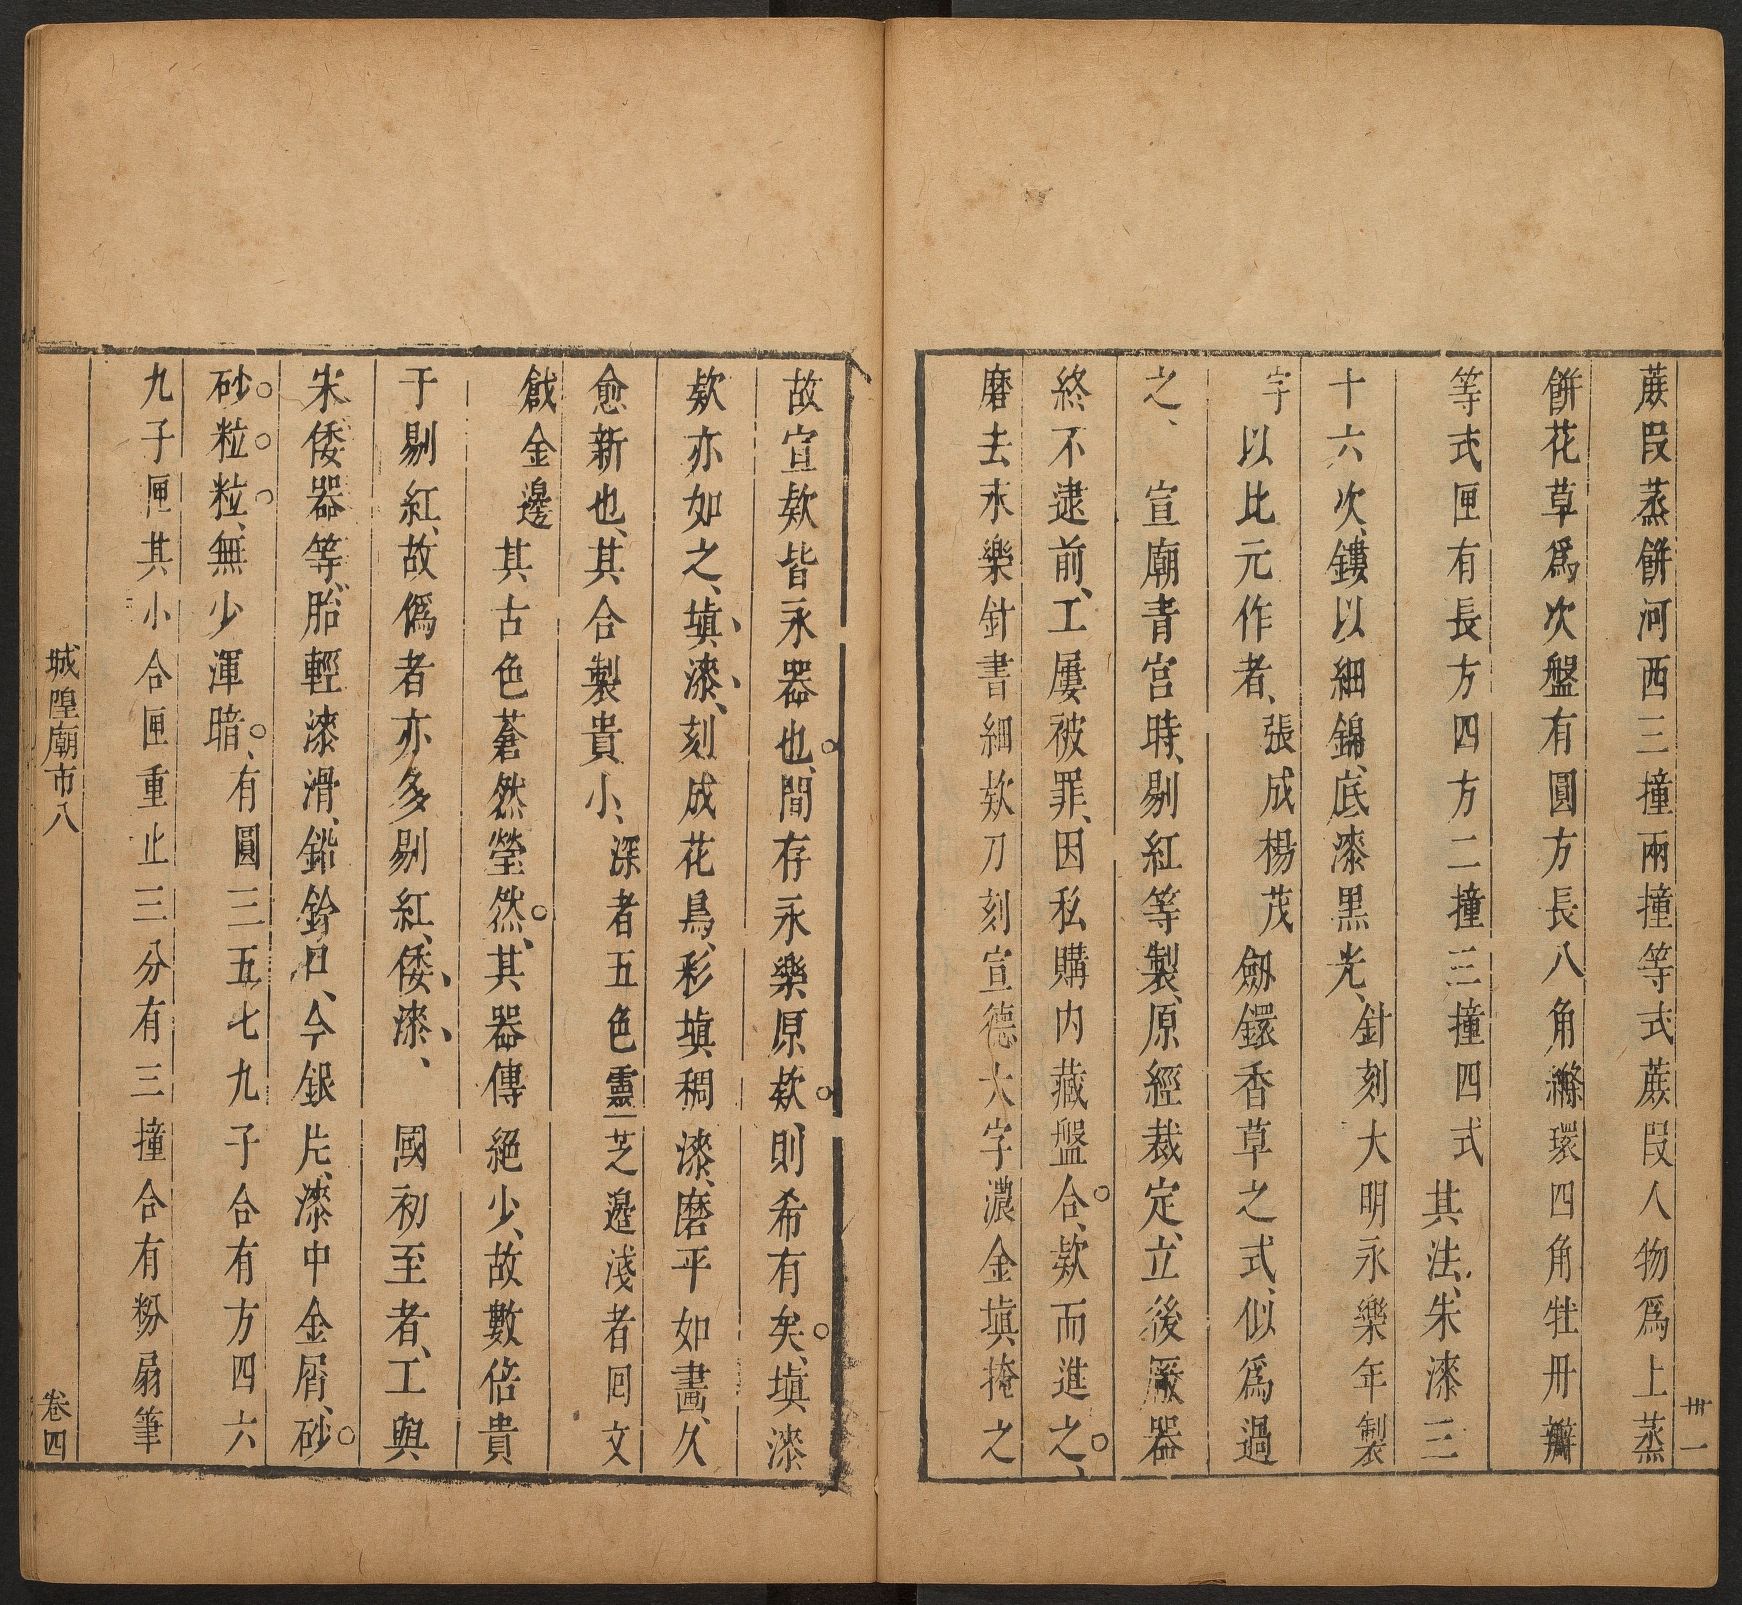 蔗叚蒸餅河西三撞兩撞等式蔗叚人物爲上蒸
餅花草爲次盤有圓方長八角縧環四角牡丹瓣
等式匣有長方四方二撞三撞四式其法、朱漆三
十六次、鏤以細錦、底漆黑光、針刻大明永樂年製
字以比元作者、張成楊茂劔鐶香草之式、似爲過
之、宣廟青宮時、剔紅等製、原經裁定、立後厰器
終不逮前、工屢被罪、因私購內藏盤合、欵而進之、
磨去永樂針書細欵刀刻宣德大字濃金塡掩之
故宣欵皆永器也、間存永樂原欵、則希有矣、塡漆
欵亦如之、塡漆、刻成花鳥、彩塡稠漆、磨平如畫、久
愈新也、其合製貴小、深者五色靈芝邊淺者回文
戧金邊其古色蒼然瑩然、其器傳絕少、故數倍貴
于剔紅、故僞者亦多剔紅、倭漆、國初至者、工與
宋倭器等、胎輕漆滑、鉛鈐口、今銀片、漆中金屑、砂
砂粒粒、無少渾暗、有圓三五七九子合有方四六
九子匣其小合匣重止三分有三撞合有粉扇筆
城隍廟市八
卷四
卅一